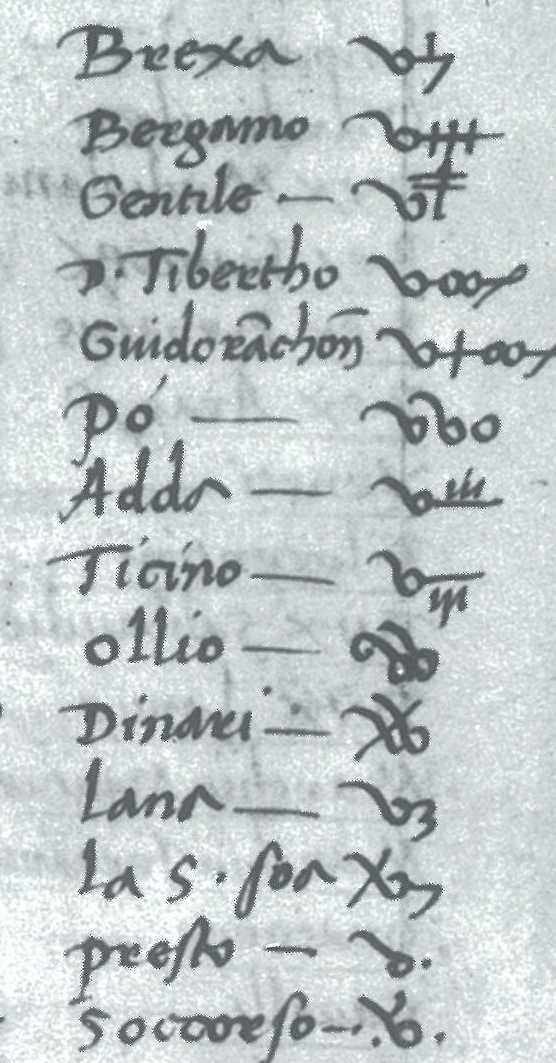 Brexa
Bergamo
Gentile —
D. Tibertho
Guidorāchoñ
Po —
Adda —
Ticino —
ollio —
Dinari —
Lana —
la S. soa
presto —
Soccorso —